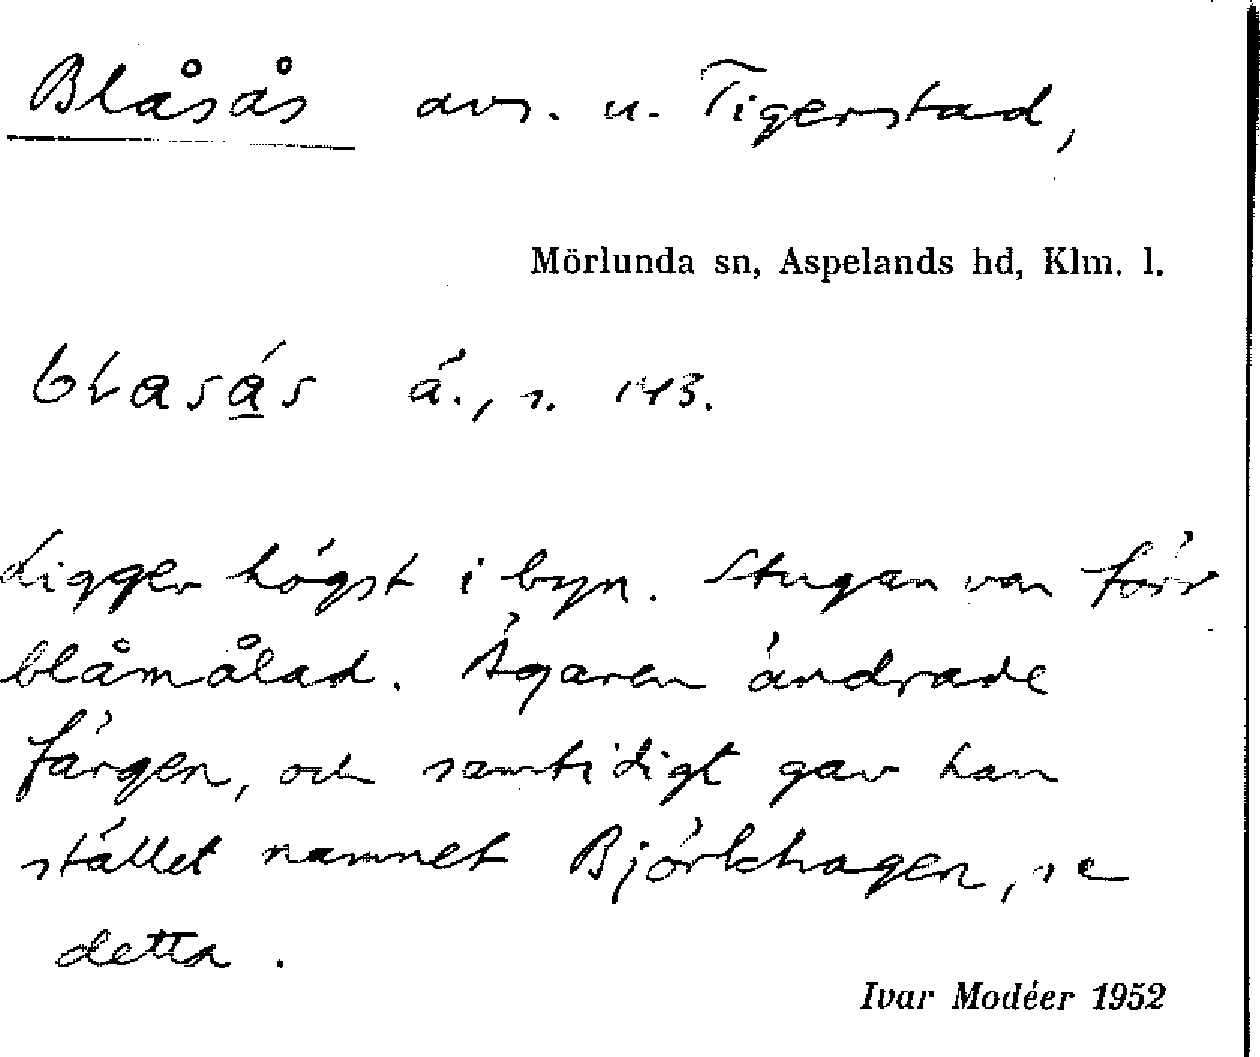 Blåsås avs. u. Tigerstad,
Mörlunda sn, Aspelands hd, Klm. l.
blasás ä., s. 143.
Ligger högst i byn. Stugan var förr
blåmålad. Ägaren ändrade
färgen, och samtidigt gav han
stället namnet Björkhagen, se
detta.
Ivar Modéer 1952